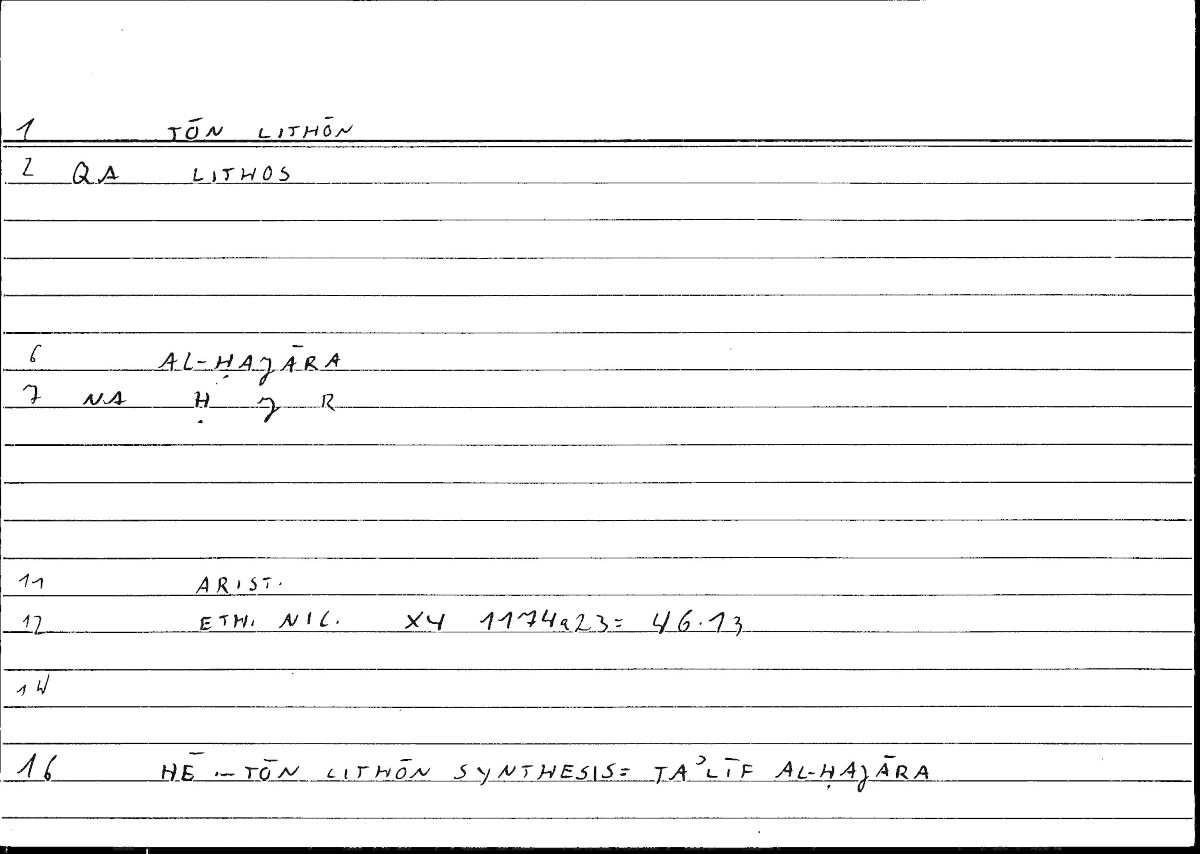 1 TŌN LITHŌN
2 QA LITHOS
6 AL-ḤAJĀRA
7 NA Ḥ J R
11 ARIST.
12 ETH. NIC. X4 1174a23= 46.13
14
16 HĒ – TŌN LITHŌN SYNTHESIS= TAʾLĪF AL-ḤAJĀRA